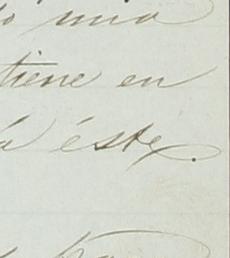 una
tiene en
á éste